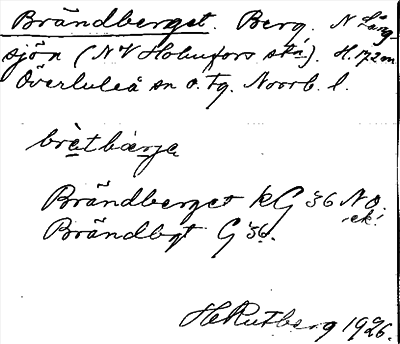 Brändberget. Berg. N Lång-
sjön (NV Holmfors stn). H. 172 m
Överluleå sn o. tg. Norrb. l.
brètbærje
Brändberget kG 36 NO
ek!
Brändbgt G 36.
HRutberg 1926.